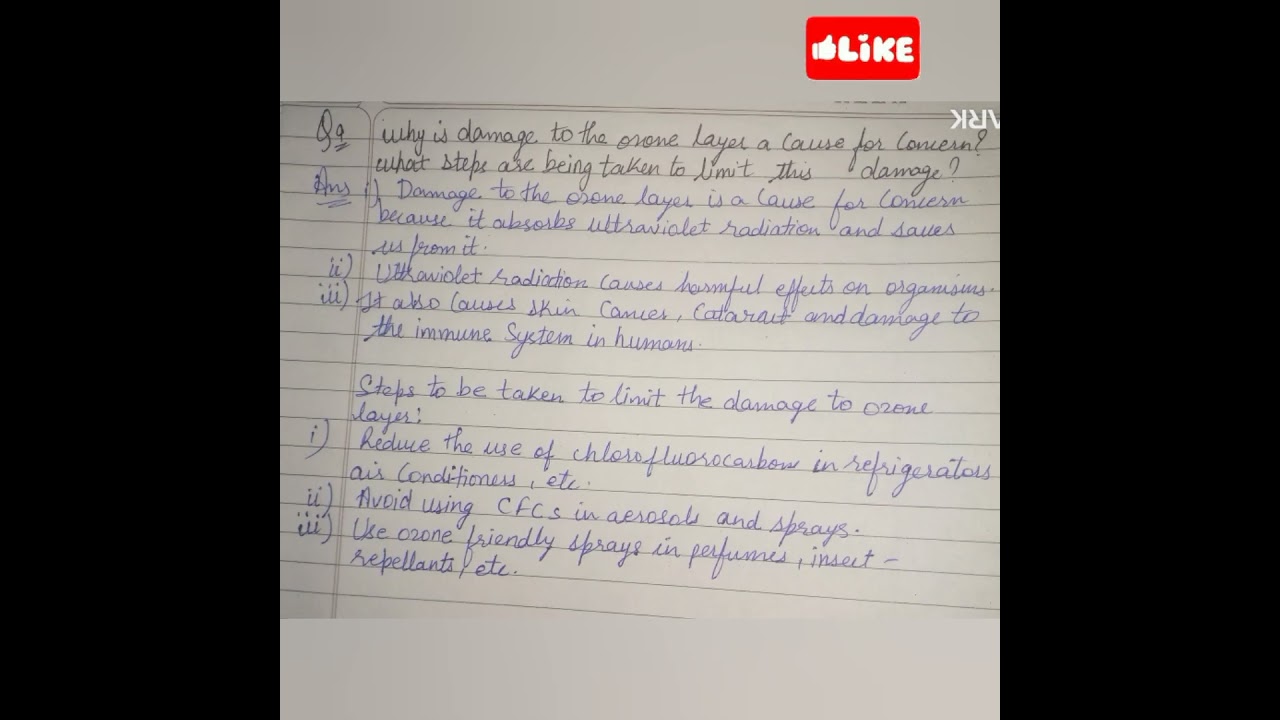 LIKE
ARK
Q9 Why is damage to the ozone layer a cause for concern?
what steps are being taken to limit this damage?
Ans i) Damage to the ozone layer is a cause for concern
because it absorbs ultraviolet radiation and saves
us from it.
ii) Ultraviolet radiation causes harmful effects on organisms.
iii) It also causes skin cancer, cataract and damage to
the immune system in humans.
Steps to be taken to limit the damage to ozone
layer:
i) Reduce the use of chlorofluorocarbon in refrigerators
air conditioners, etc.
ii) Avoid using CFCs in aerosols and sprays.
iii) Use ozone friendly sprays in perfumes, insect -
repellants, etc.